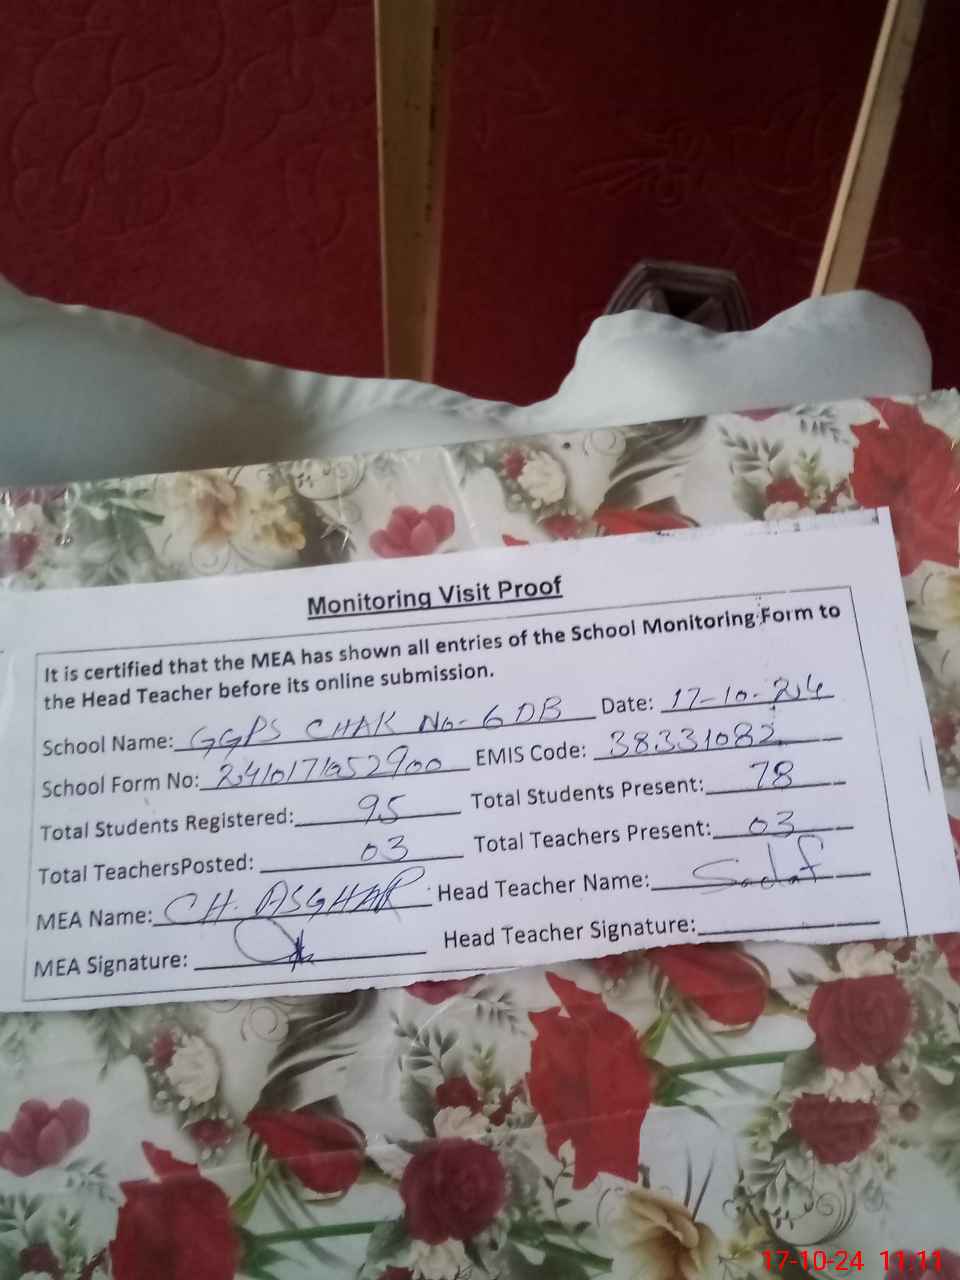 Monitoring Visit Proof
It is certified that the MEA has shown all entries of the School Monitoring Form to
the Head Teacher before its online submission.
School Name: GGPS CHAK No-6 DB Date: 17-10-24
School Form No: 2410171052900 EMIS Code: 38331082
Total Students Registered: 95 Total Students Present: 78
Total TeachersPosted: 03 Total Teachers Present: 03
MEA Name: CH. ASGHAR Head Teacher Name: Sadaf
MEA Signature: Head Teacher Signature:
17-10-24 11:11